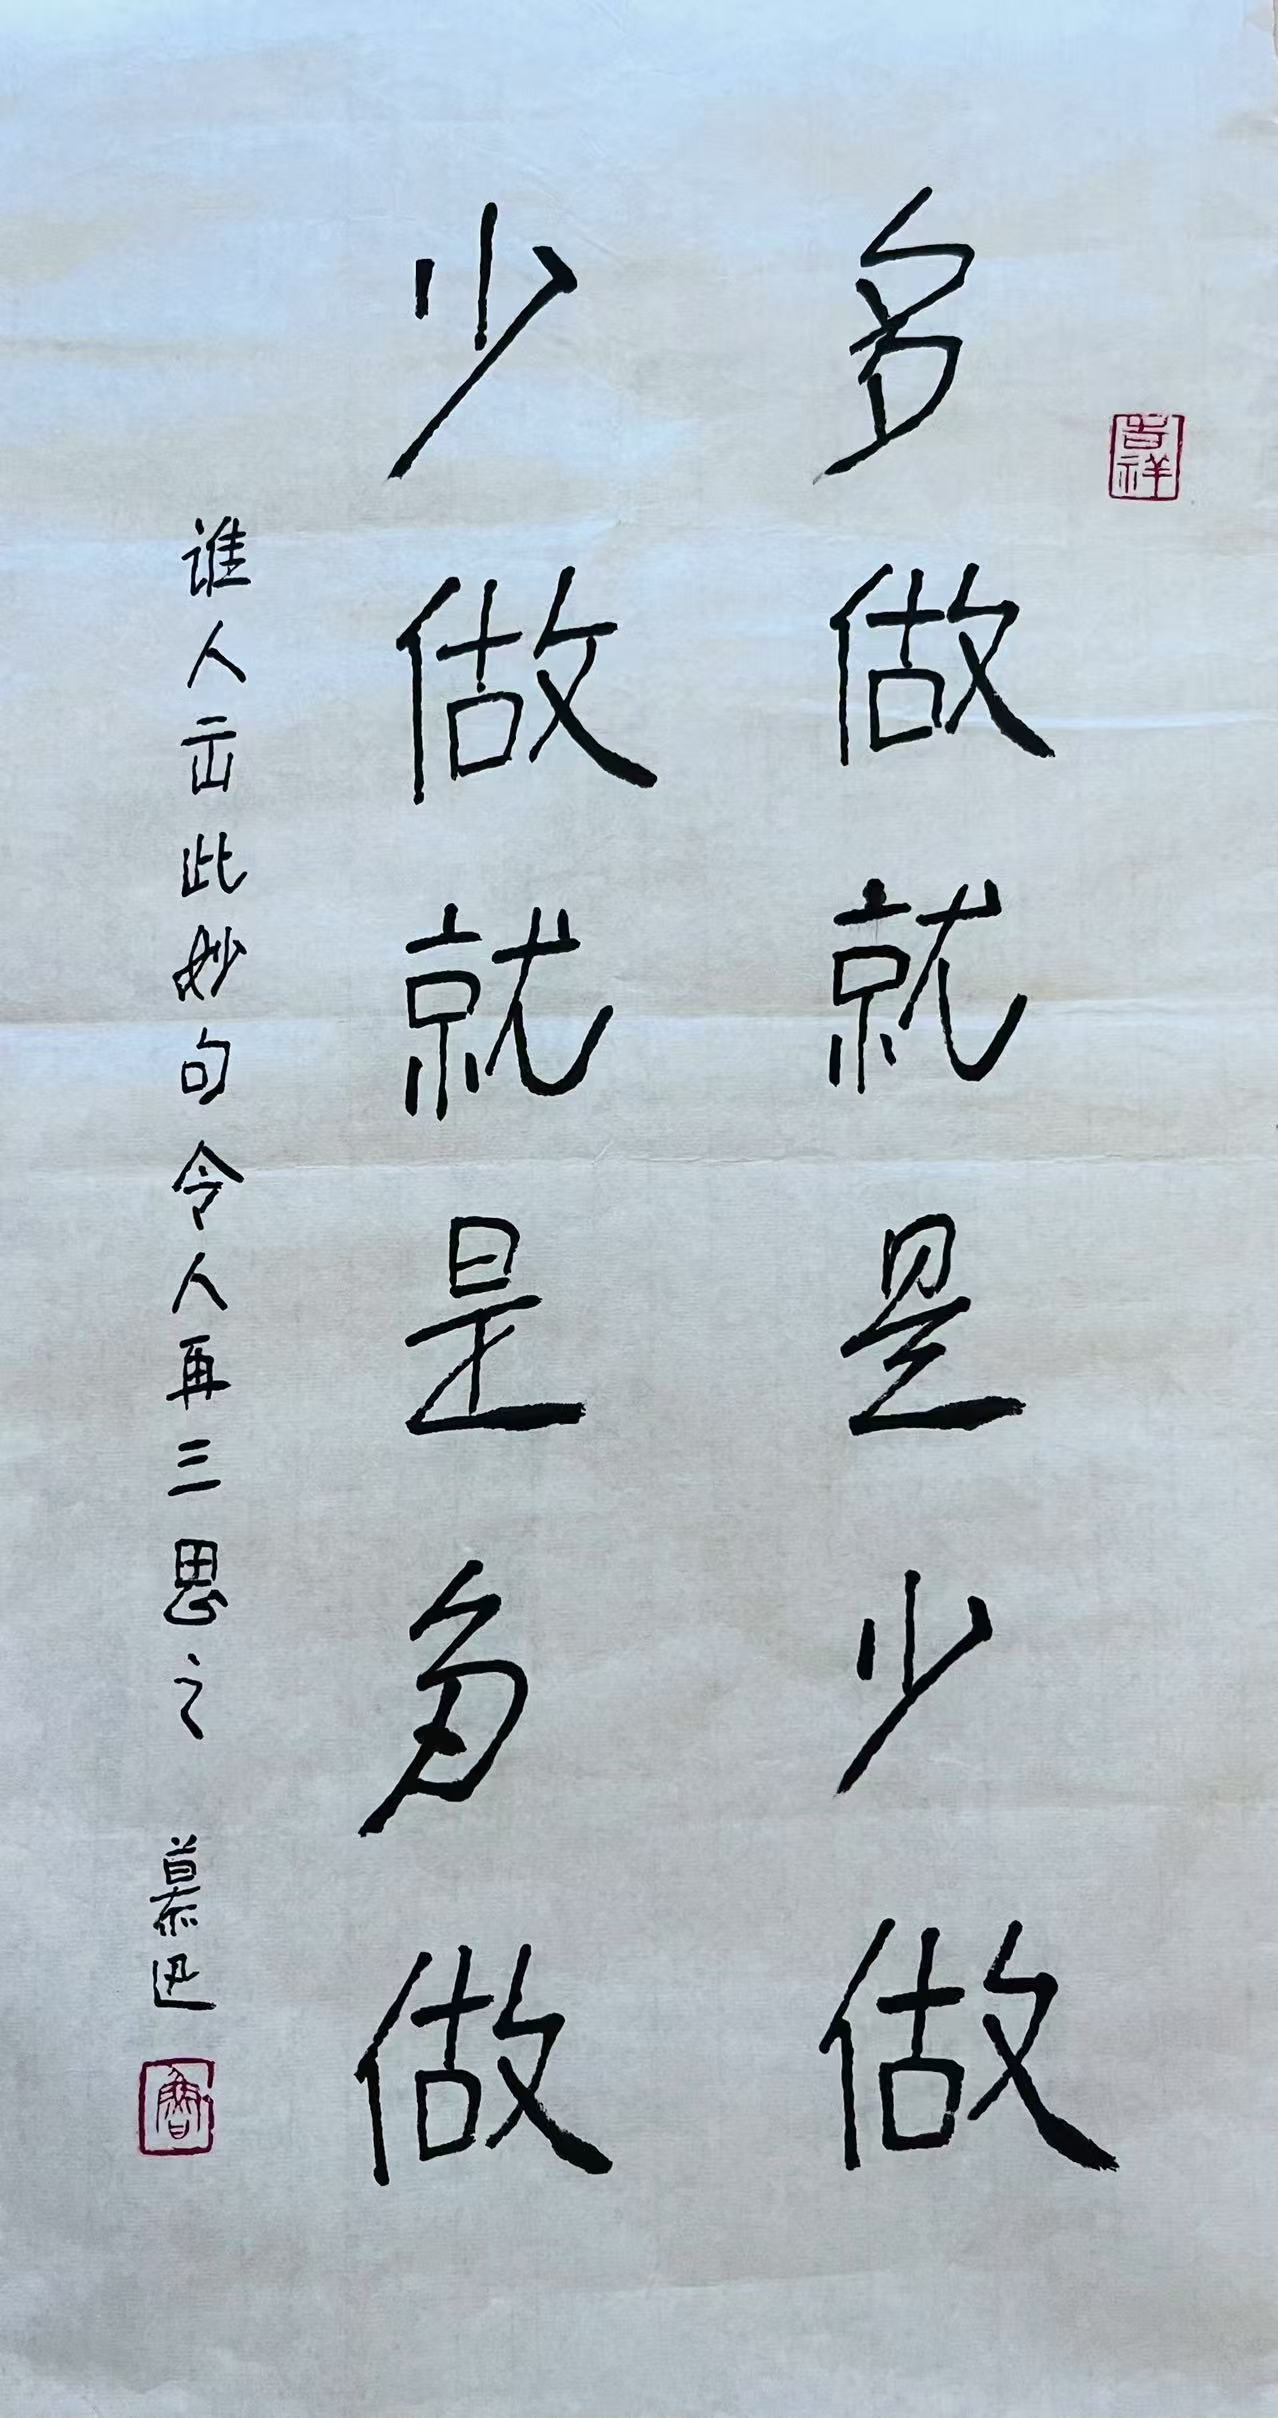 多做就是少做
少做就是多做
谁人云此妙句令人再三思之 慕迅
吉祥